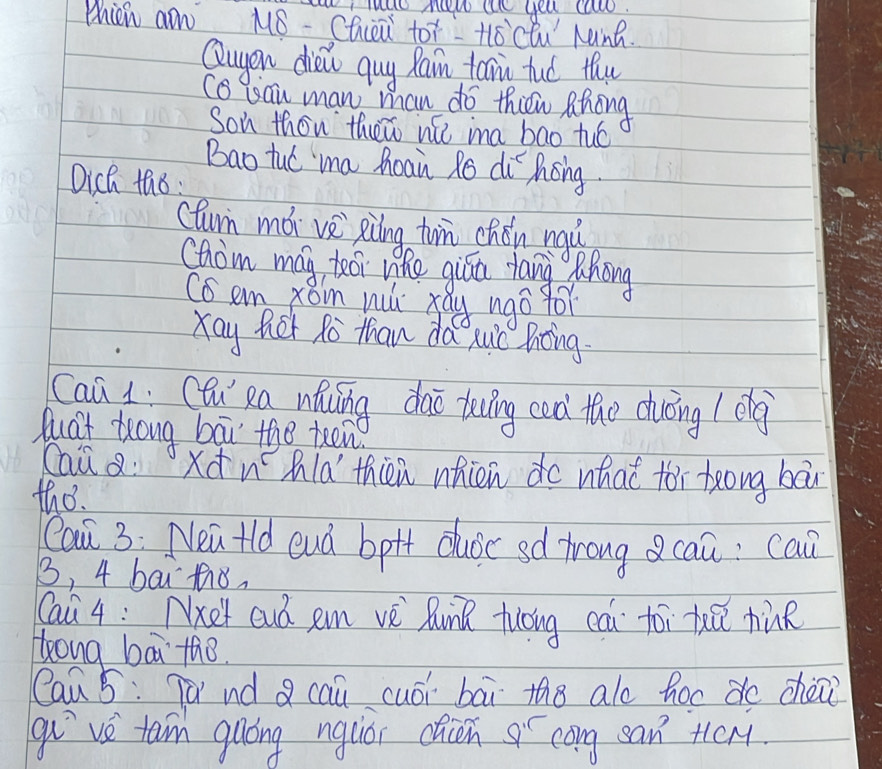 Phiên âm Mộ - Chiều tối - Hồ Chí Minh.
Quyện điểu quy lâm tầm túc thụ
Cô vân mạn mạn độ thiên không
Sơn thôn thiếu nữ ma bao túc
Bao túc ma hoàn lô dĩ hồng.
Dịch thơ:
Chim mỏi về rừng tìm chốn ngủ
Chòm mây trôi nhẹ giữa tầng không
Cô em xóm núi xay ngô tối
Xay hết lò than đã rực hồng.
Câu 1: Chỉ ra những đặc trưng của thơ đường
luật trong bài thơ trên.
Câu 2: Xđ n~ h/a' thiên nhiên đc nhắc tới trong bài
thơ.
Câu 3: Nêu td của bptt được sd trong 2 câu: câu
3, 4 bài thơ.
Câu 4: Nxét của em về hình tượng cái tôi trữ tình
trong bài thơ.
Câu 5: Từ nd 2 câu cuối bài thơ a/c học đc điều
gì về tấm gương người chiến sĩ cộng sản HCM.